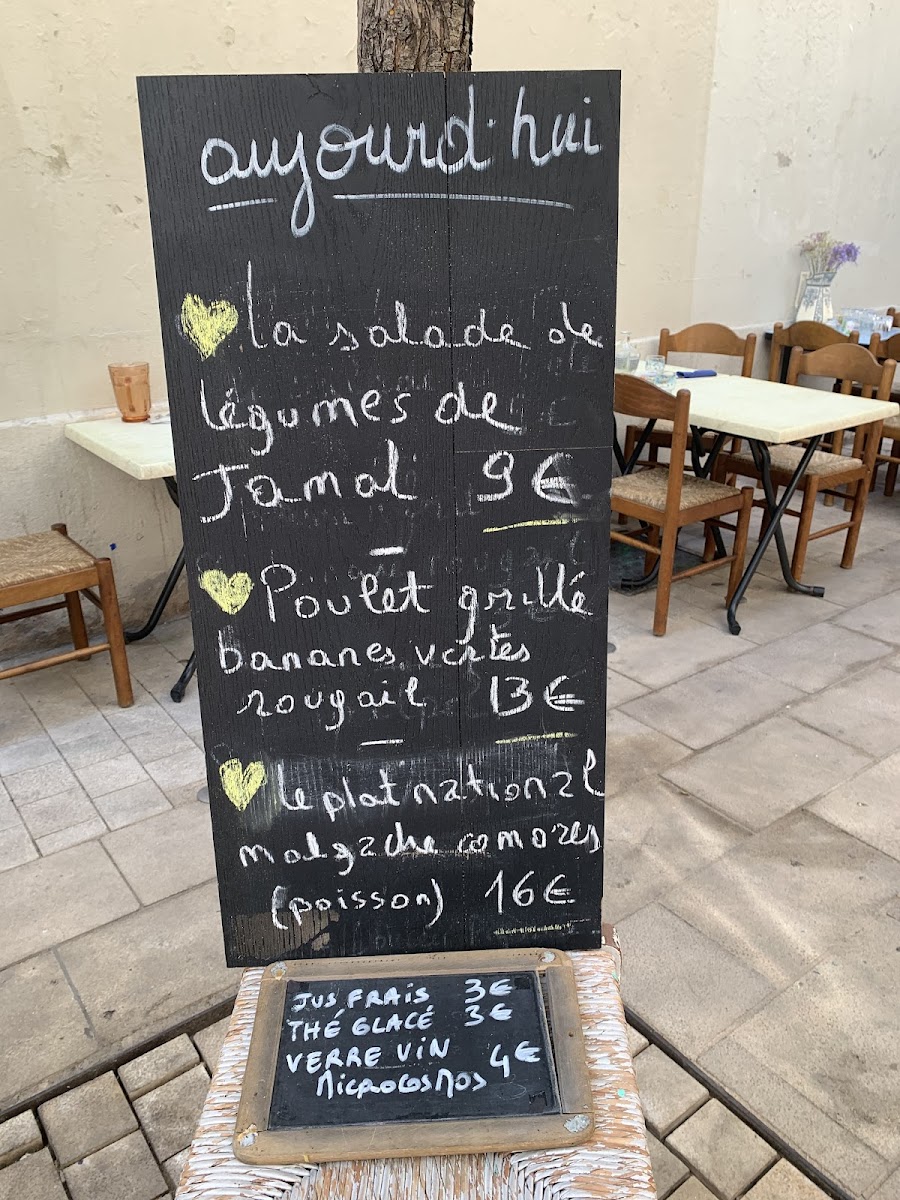 aujourd'hui
la salade de
légumes de
Jamal 9€
Poulet grillé
bananes vertes
rougail 13€
le plat national
malgache comores
(poisson) 16€
JUS FRAIS 3€
THÉ GLACÉ 3€
VERRE VIN 4€
MICROCOSMOS